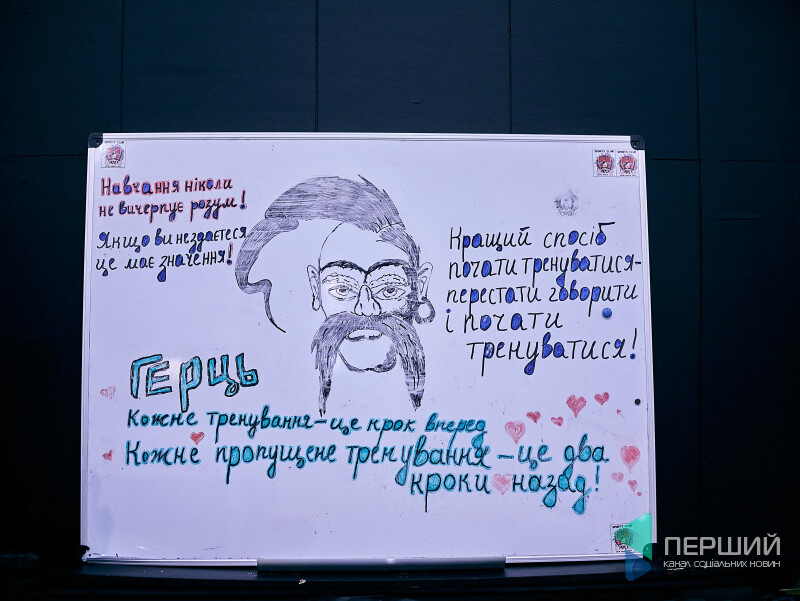 Навчання ніколи
не вичерпує розум!
Якщо ви нездаєтеся
це має значення!
Кращий спосіб
почати тренуватися-
перестати говорити
і почати
тренуватися!
ГЕРЦЬ
Кожне тренування-це крок вперед
Кожне пропущене тренування-це два
кроки назад!
SPORTS CLUB
SPORTS CLUB
ПЕРШИЙ
КАНАЛ СОЦІАЛЬНИХ НОВИН